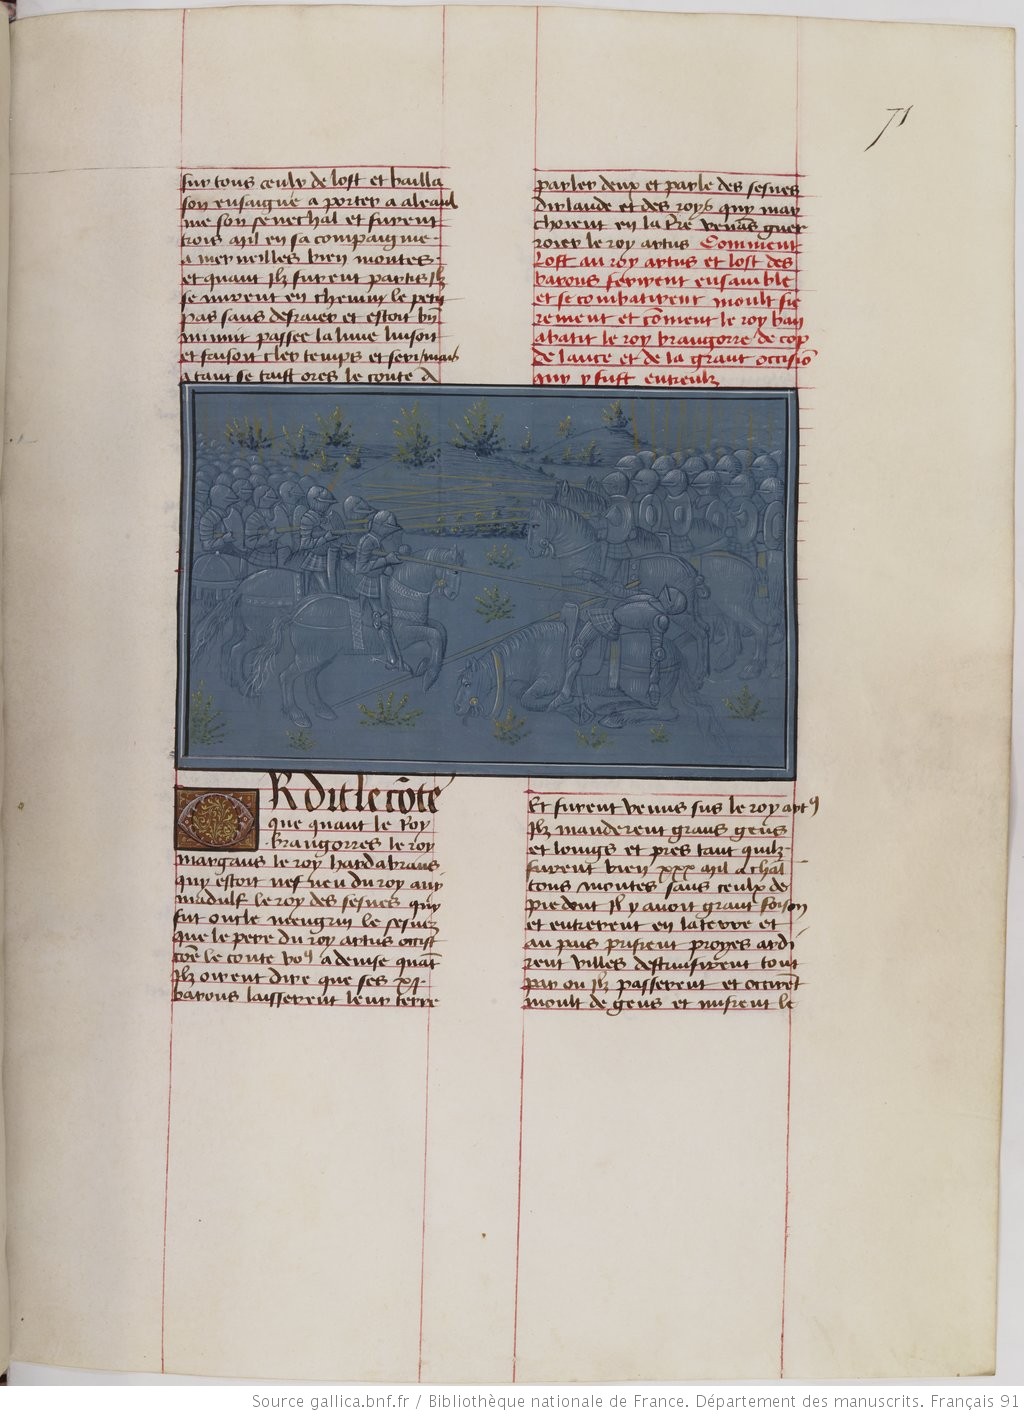 71
sur tous ceulx de lost et bailla
son enseigne a porter a aleaul
me son senechal et furent
trois mil en sa compaignie.
a merveilles bien montes.
et quant ilz furent partis ilz
se mirent en chemin le petit
pas sans desraier et estoit bñ
minuit passee la lune luisoit
et faisoit cler temps et seri / mais
atant se taist ores le conte d
parler deux et parle des sesnes
dirlande et des roys quy mar
choient en la t̃re venãs guer
roier le roy artus Comment
lost au roy artus et lost des
barons ferirent ensamble
et se combatirent moult fie
rement et cõment le roy ban
abatit le roy brangorre de cop
de lance et de la grant occisiõ
quy y fust entreulz
OR dit le cõte
que quant le Roy
brangorres le roy
margans le roy hardabrans
quy estoit nef neu du roy am̃
madulf le roy des sesnes quy
fut oncle mengrin le sesnez
que le pere du roy artus occist
cõe le conte vo⁹ a devise quãt
ilz oirent dire que ses xj.
barons laisserent leur terre
Et furent venus sus le roy art⁹
ilz manderent grans gens
et loings et pres tant quilz.
furent bien xxx mil a chãl
tous montes sans ceulx de
pie dont il y avoit grant foison
et entrerent en la terre et
au pais prisrent proyes ardi
rent villes destruisirent tout
par ou ilz passerent et occirẽt
moult de gens et misrent le
Source gallica.bnf.fr / Bibliothèque nationale de France. Département des manuscrits. Français 91